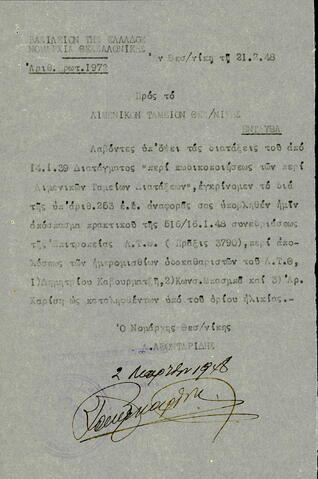 ΒΑΣΙΛΕΙΟΝ ΤΗΣ ΕΛΛΑΔΟΣ
ΝΟΜΑΡΧΙΑ ΘΕΣΣΑΛΟΝΙΚΗΣ
Ἀριθ. πρωτ.1972
Ἐν Θεσ/νίκῃ τῇ 21.2.48
Πρός τό
ΛΙΜΕΝΙΚΟΝ ΤΑΜΕΙΟΝ ΘΕΣ/ΝΙΚΗΣ
ΕΝΤΑΥΘΑ
Λαβόντες ὑπ'ὄψει τάς διατάξεις τοῦ ἀπό
14.1.39 Διατάγματος "περί κωδικοποιήσεως τῶν περί
Λιμενικῶν Ταμείων Διατάξεων", ἐγκρίνομεν τό διά
τῆς ὑπ'ἀριθ.263 ἐ.ἔ. ἀναφορᾶς σας ὑποβληθέν ἡμῖν
ἀπόσπασμα πρακτικοῦ τῆς 516/16.1.48 συνεδριάσεως
τῆς Ἐπιτροπείας Λ.Τ.Θ. ( Πρᾶξις 3790), περί ἀπο-
λύσεως τῶν ἡμερομισθίων ὁδοκαθαριστῶν τοῦ Λ.Τ.Θ,
1)Δημητρίου Καβουρματζῆ,2)Κωνσ.Μπασμᾶ καί 3) Ἀρ.
Καρίση ὡς καταληφθέντων ὑπό τοῦ ὁρίου ἡλικίας.-
Ὁ Νομάρχης Θεσ/νίκης
Α.ΛΕΟΝΤΑΡΙΔΗΣ
2 Μαρτίου 1948